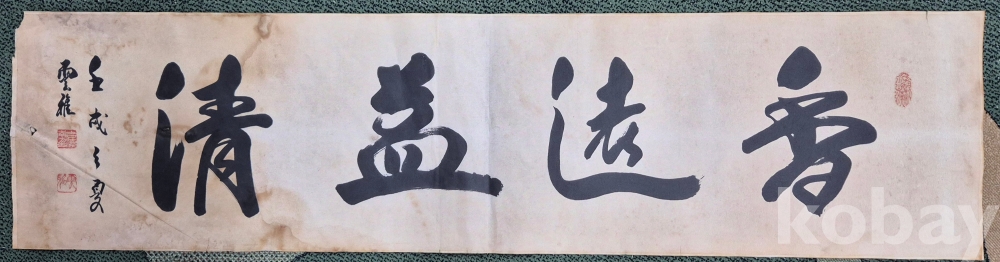 香遠益清
壬戌之夏
雲
kobay